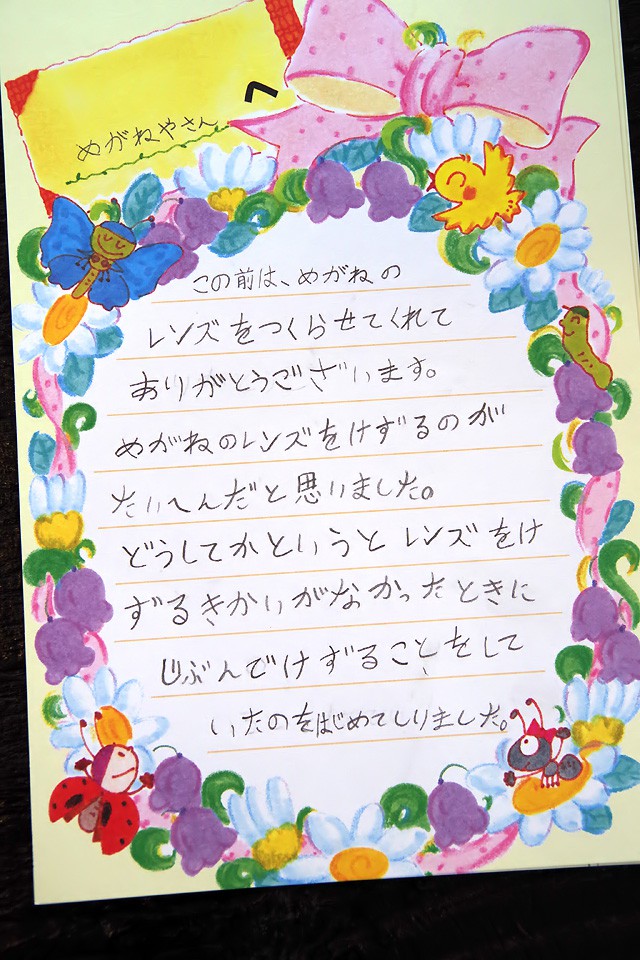 めがねやさん へ
この前は、めがねの
レンズをつくらせてくれて
ありがとうございます。
めがねのレンズをけずるのが
たいへんだと思いました。
どうしてかというと レンズをけ
ずるきかいがなかったときに
じぶんでけずることをして
いたのをはじめてしりました。